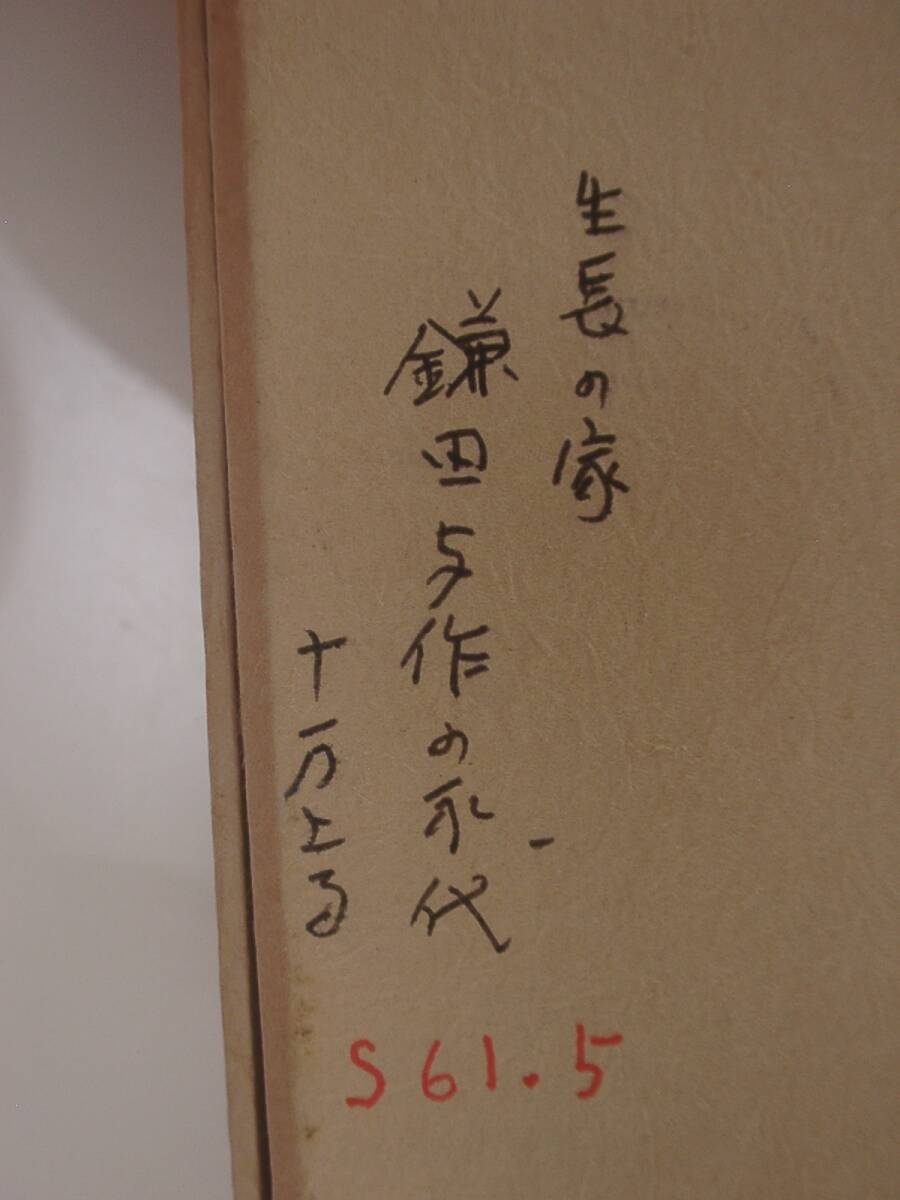 生長の家
鎌田与作の永代
十一万上る
S61.5